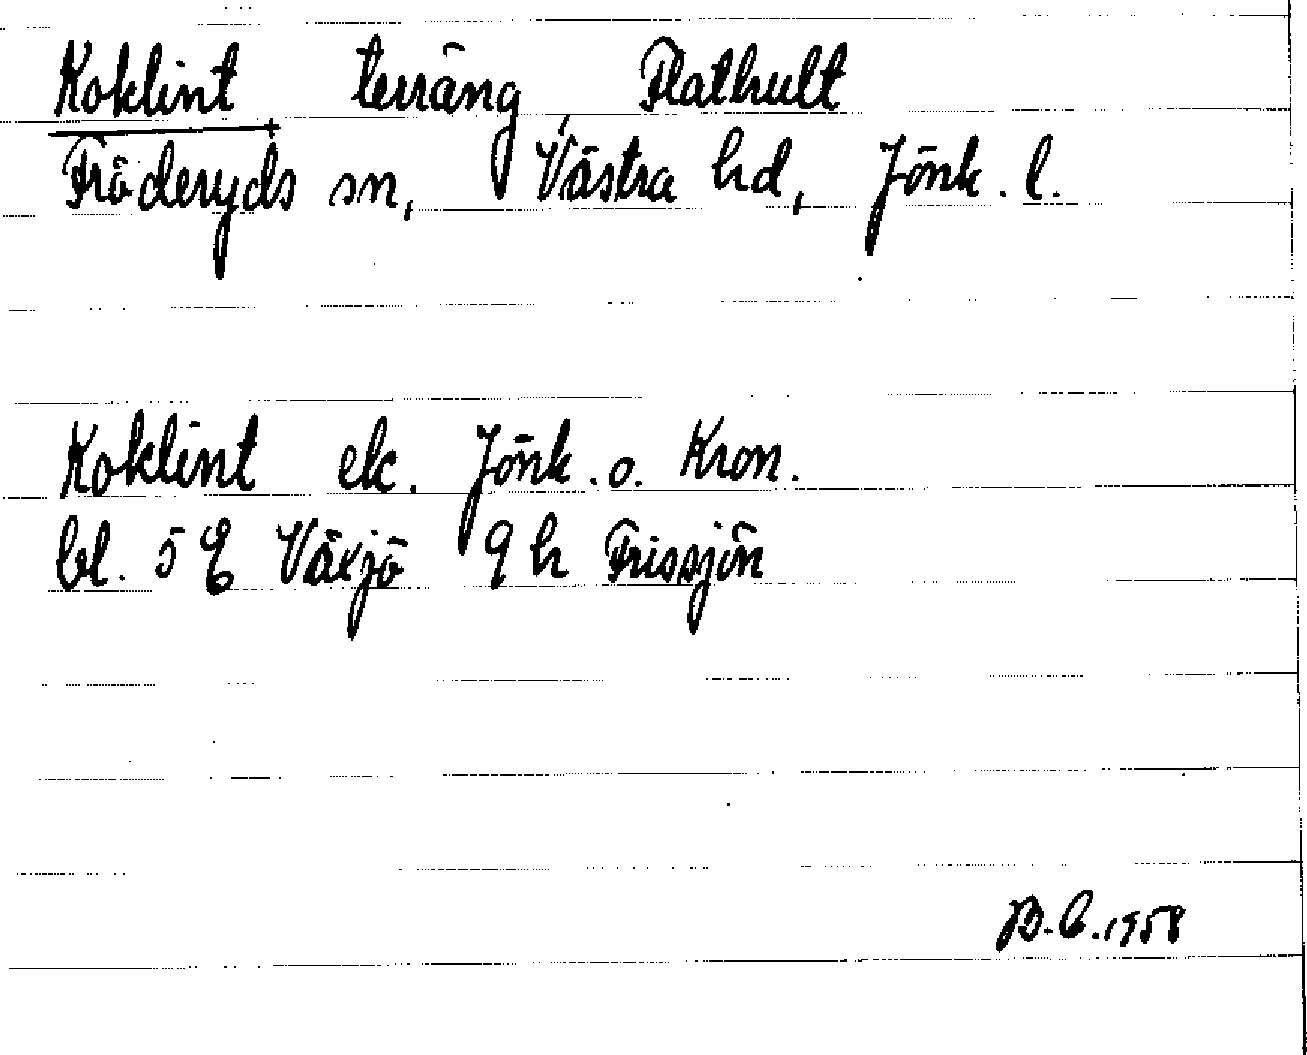 Koklint terräng Flathult
Fröderyds sn, Västra hd, Jönk. l.
Koklint ek. Jönk. o. Kron.
bl. 5 E Växjö 9 h Frissjön
B.C. 1958